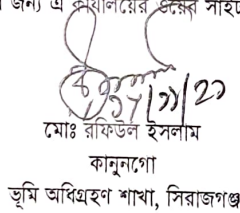 জন্য এ কার্যালয়ের
মোঃ রফিউল ইসলাম
কানুনগো
ভূমি অধিগ্রহণ শাখা, সিরাজগঞ্জ